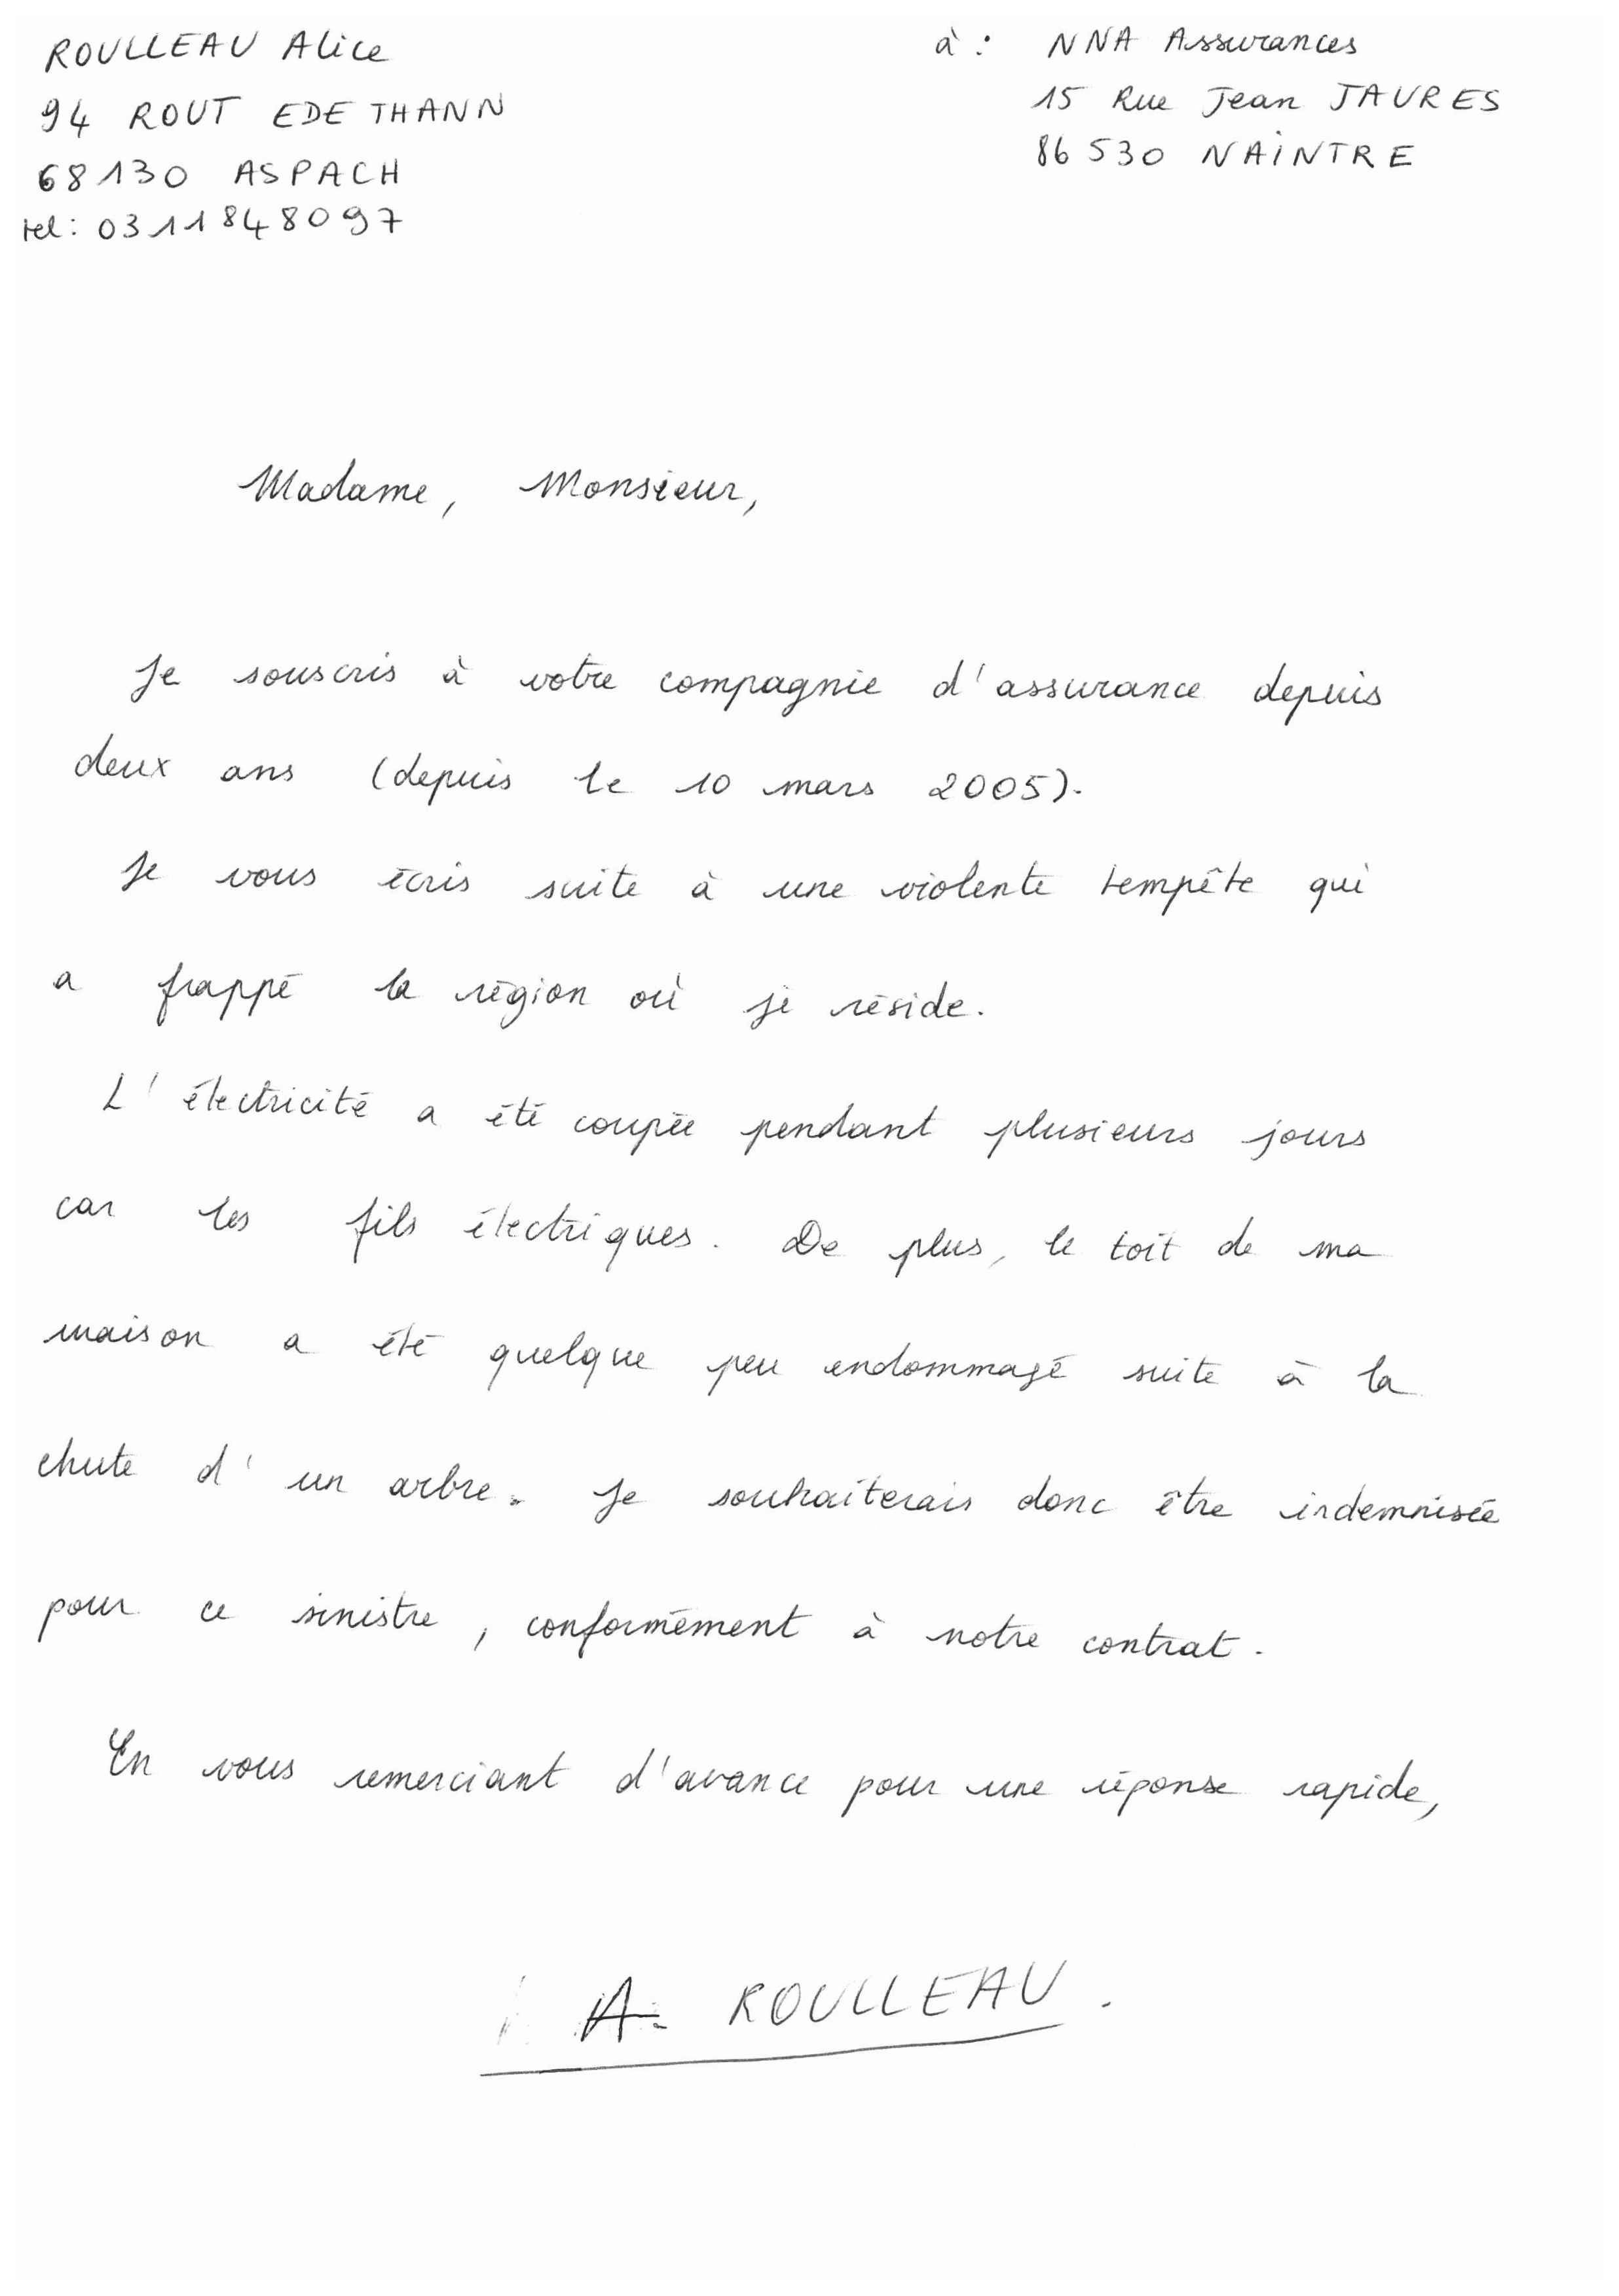 ROULLEAU Alice
94 ROUT EDE THANN
68130 ASPACH
tel: 0311848097
à : NNA Assurances
15 Rue Jean JAURES
86530 NAINTRE
Madame, Monsieur,
Je souscris à votre compagnie d'assurance depuis
deux ans (depuis le 10 mars 2005).
Je vous écris suite à une violente tempête qui
a frappé la région où je réside.
L'électricité a été coupée pendant plusieurs jours
car les fils électriques. De plus, le toit de ma
maison a été quelque peu endommagé suite à la
chute d'un arbre. Je souhaiterais donc être indemnisée
pour ce sinistre, conformément à notre contrat.
En vous remerciant d'avance pour une réponse rapide,
A. ROULLEAU.